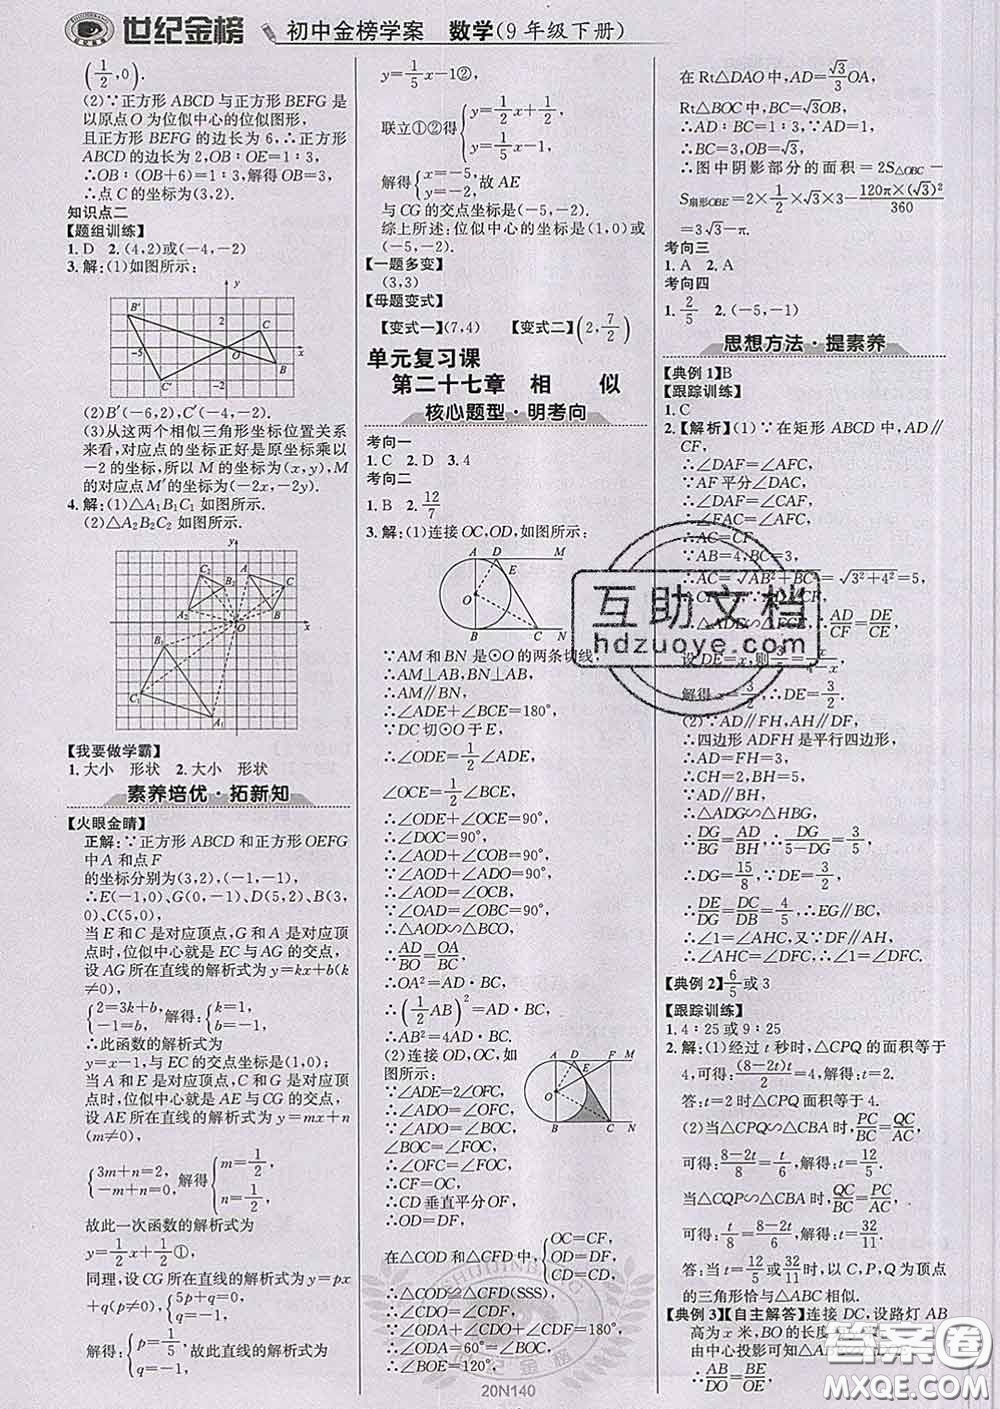 世纪金榜 初中金榜学案 数学(9年级下册)
(1/2,0).
(2)∵正方形ABCD与正方形BEFG是
以原点O为位似中心的位似图形,
且正方形BEFG的边长为6,∴正方形
ABCD的边长为2,OB∶OE=1∶3,
∴OB∶(OB+6)=1∶3,解得OB=3,
∴点C的坐标为(3,2).
知识点二
【题组训练】
1.D 2.(4,2)或(-4,-2)
3.解:(1)如图所示:
B′ y 2 C -5 O x B C′
(2)B′(-6,2),C′(-4,-2).
(3)从这两个相似三角形坐标位置关系
来看,对应点的坐标正好是原坐标乘以
-2的坐标,所以M的坐标为(x,y),M
的对应点M′的坐标为(-2x,-2y).
4.解:(1)△A₁B₁C₁如图所示.
(2)△A₂B₂C₂如图所示.
【我要做学霸】
1.大小 形状 2.大小 形状
素养培优·拓新知
【火眼金睛】
正解:∵正方形ABCD和正方形OEFG
中A和点F
的坐标分别为(3,2),(-1,-1),
∴E(-1,0),G(0,-1),D(5,2),B(3,
0),C(5,0),
当E和C是对应顶点,G和A是对应顶
点时,位似中心就是EC与AG的交点,
设AG所在直线的解析式为y=kx+b(k
≠0),
{2=3k+b, -1=b, 解得:{k=1, b=-1,
∴此函数的解析式为
y=x-1,与EC的交点坐标是(1,0);
当A和E是对应顶点,C和G是对应顶
点时,位似中心就是AE与CG的交点,
设AE所在直线的解析式为y=mx+n
(m≠0),
{3m+n=2, -m+n=0, 解得{m=1/2, n=1/2.
故此一次函数的解析式为
y=1/2x+1/2①,
同理,设CG所在直线的解析式为y=px
+q(p≠0),{5p+q=0, q=-1,
解得:{p=1/5, q=-1, 故此直线的解析式为
y=1/5x-1②,
联立①②得{y=1/2x+1/2, y=1/5x-1,
解得{x=-5, y=-2, 故AE
与CG的交点坐标是(-5,-2).
综上所述:位似中心的坐标是(1,0)或
(-5,-2).
【一题多变】
(3,3)
【母题变式】
【变式一】(7,4) 【变式二】(2,7/2)
单元复习课
第二十七章 相 似
核心题型·明考向
考向一
1.C 2.D 3.4
考向二
1.B 2.12/7
3.解:(1)连接OC,OD,如图所示:
A D M E O B C N
∵AM和BN是⊙O的两条切线,
∴AM⊥AB,BN⊥AB,
∴AM∥BN,
∴∠ADE+∠BCE=180°,
∵DC切⊙O于E,
∴∠ODE=1/2∠ADE,
∠OCE=1/2∠BCE,
∴∠ODE+∠OCE=90°,
∴∠DOC=90°,
∴∠AOD+∠COB=90°,
∴∠AOD=∠OCB,
∵∠OAD=∠OBC=90°,
∴△AOD∽△BCO,
∴AD/BO=OA/BC,
∴OA²=AD·BC,
∴(1/2AB)²=AD·BC,
∴AB²=4AD·BC.
(2)连接OD,OC,如
图所示:
A D F M E O B C N
∵∠ADE=2∠OFC,
∴∠ADO=∠OFC,
∵∠ADO=∠BOC,
∴∠OFC=∠FOC,
∴CF=OC,
∴CD垂直平分OF,
∴OD=DF,
在△COD和△CFD中,{OC=CF, OD=DF, CD=CD,
∴△COD≌△CFD(SSS),
∴∠CDO=∠CDF,
∵∠ODA+∠CDO+∠CDF=180°,
∴∠ODA=60°=∠BOC,
∴∠BOE=120°,
在Rt△DAO中,AD=√3/3OA,
Rt△BOC中,BC=√3OB,
∴AD∶BC=1∶3,
∵AD=1,∴BC=3,OB=√3,
∴图中阴影部分的面积=2S△OBC-
S扇形OBE=2×1/2×√3×3-120π×(√3)²/360
=3√3-π.
考向三
1.A 2.A
考向四
1.2/5 2.(-5,-1)
思想方法·提素养
【典例1】B
【跟踪训练】
1.C
2.【解析】(1)∵在矩形ABCD中,AD∥
CF,
∴∠DAF=∠AFC,
∵AF平分∠DAC,
∴∠DAF=∠CAF,
∴∠FAC=∠AFC,
∴AC=CF,
∵AB=4,BC=3,
∴AC=√AB²+BC²=√3²+4²=5,
∴CF=5,
∴△ADE∽△FCE,∴AD/CF=DE/CE,
设DE=x,则3/5=x/4-x,
解得x=3/2,∴DE=3/2.
(2)∵AD∥FH,AH∥DF,
∴四边形ADFH是平行四边形,
∴AD=FH=3,
∴CH=2,BH=5,
∵AD∥BH,
∴△ADG∽△HBG,
∴DG/BG=AD/BH,∴DG/5-DG=3/5,
∴DG=15/8,∵DE=3/2,
∴DE/DG=DC/DB=4/5,∴EG∥BC,
∴∠1=∠AHC,又∵DF∥AH,
∴∠AHC=∠DFC,∴∠1=∠DFC.
【典例2】6/5或3
【跟踪训练】
1.4∶25或9∶25
2.解:(1)经过t秒时,△CPQ的面积等于
4,可得:(8-2t)t/2=4,解得:t=2.
答:t=2时△CPQ面积等于4.
(2)当△CPQ∽△CBA时,PC/BC=QC/AC,
可得:8-2t/8=t/6,解得:t=12/5,
当△CQP∽△CBA时,QC/BC=PC/AC,
可得:t/8=8-2t/6,解得:t=32/11.
答:当t=12/5或32/11时,以C,P,Q为顶点
的三角形恰与△CBA相似.
【典例3】【自主解答】连接DC,设路灯AB
高为x米,BO的长度
由中心投影可知
∴AB/DO=BE/OE,
20N140
互助文档
hdzuoye.com
答案圈
MXQE.COM